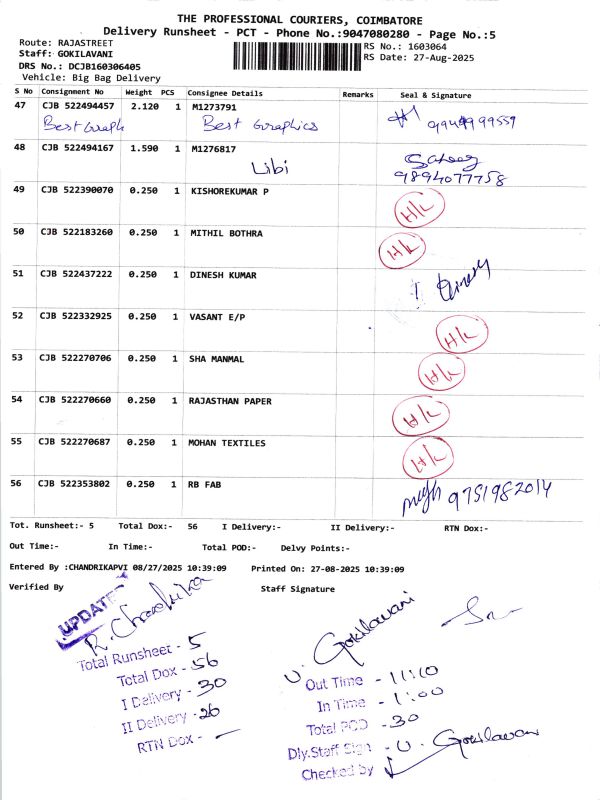 THE PROFESSIONAL COURIERS, COIMBATORE
Delivery Runsheet - PCT - Phone No.:9047080280 - Page No.:5
Route: RAJASTREET
Staff: GOKILAVANI
DRS No.: DCJB160306405
Vehicle: Big Bag Delivery
RS No.: 1603064
RS Date: 27-Aug-2025
S No Consignment No Weight PCS Consignee Details Remarks Seal & Signature
47 CJB 522494457 2.120 1 M1273791
Best Graph Best Graphics
48 CJB 522494167 1.590 1 M1276817
Libi
9894077758
49 CJB 522390070 0.250 1 KISHOREKUMAR P H/L
50 CJB 522183260 0.250 1 MITHIL BOTHRA H/L
51 CJB 522437222 0.250 1 DINESH KUMAR
52 CJB 522332925 0.250 1 VASANT E/P H/L
53 CJB 522270706 0.250 1 SHA MANMAL H/L
54 CJB 522270660 0.250 1 RAJASTHAN PAPER H/L
55 CJB 522270687 0.250 1 MOHAN TEXTILES H/L
56 CJB 522353802 0.250 1 RB FAB 9751982014
Tot. Runsheet:- 5 Total Dox:- 56 I Delivery:- II Delivery:- RTN Dox:-
Out Time:- In Time:- Total POD:- Delvy Points:-
Entered By :CHANDRIKAPVI 08/27/2025 10:39:09 Printed On: 27-08-2025 10:39:09
Verified By Staff Signature
UPDATED
R. Chandrika
Total Runsheet - 5
Total Dox - 56
I Delivery - 30
II Delivery - 26
RTN Dox - -
U. Gokilavani
Out Time - 11:10
In Time - 1:00
Total POD - 30
Dly.Staff Sign - U. Gokilavani
Checked by